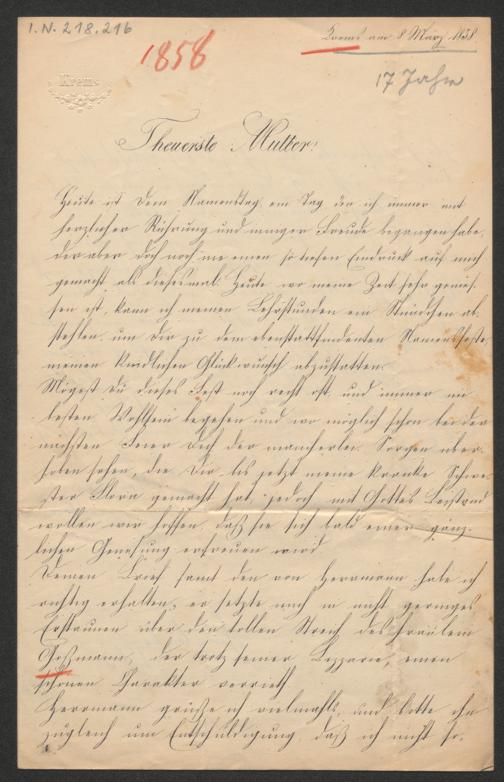 I.N. 218.216
Krems am 8 März 1858
1858
17 Jahre
Krems
Theuerste Mutter!
Heute ist Dein Namenstag, ein Tag den ich immer mit
herzlicher Rührung und inniger Freude begangen habe,
der aber doch noch nie einen so tiefen Eindruck auf mich
gemacht als diesesmal. Heute wo meine Zeit sehr gemes-
sen ist, kann ich meinen Lehrstunden ein Stündchen ab-
stehlen, um Dir zu dem ebenstattfindenten Namensfeste
meinen kindlichen Glückwunsch abzustatten.
Mögest Du dieses Fest noch recht oft, und immer im
besten Wohlsein begehen und wo möglich schon bei der
nächsten Feier Dich der mancherlei Sorgen über-
hoben sehen, die Dir bis jetzt meine kranke Schwe-
ster Flora gemacht hat, jedoch mit Gottes Beistand
wollen wir hoffen, daß sie sich bald einer gänz-
lichen Genesung erfreuen wird.
Deinen Brief samt den von Herrmann habe ich
richtig erhalten, er setzte mich in nicht geringes
Erstaunen über den tollen Streich des Fräulein
Goßmann, der trotz seiner Bizzarie, einen
schönen Charakter verrieth.
Herrmann grüße ich vielmahls, und bitte ihn
zugleich um Entschuldigung, daß ich nicht so